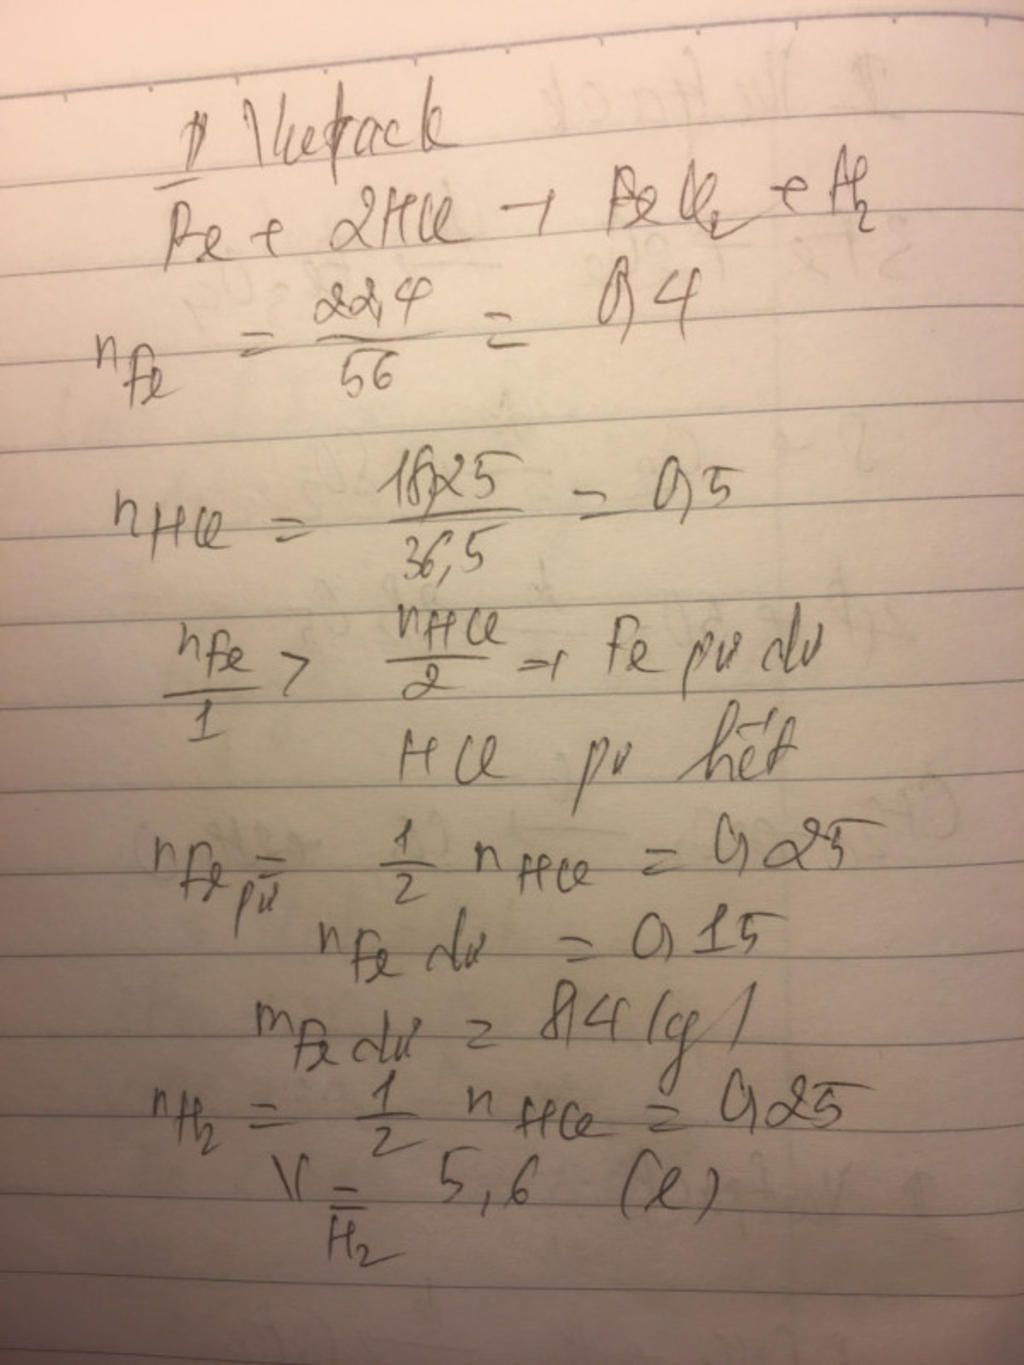 1) Vuetrack
Fe + 2HCl → FeCl₂ + H₂
nFe = 22,4/56 = 0,4
nHCl = 18,25/36,5 = 0,5
nFe/1 > nHCl/2 → Fe pư dư
HCl pư hết
nFe pư = 1/2 nHCl = 0,25
nFe dư = 0,15
mFe dư = 8,4 (g)
nH₂ = 1/2 nHCl = 0,25
VH₂ = 5,6 (l)